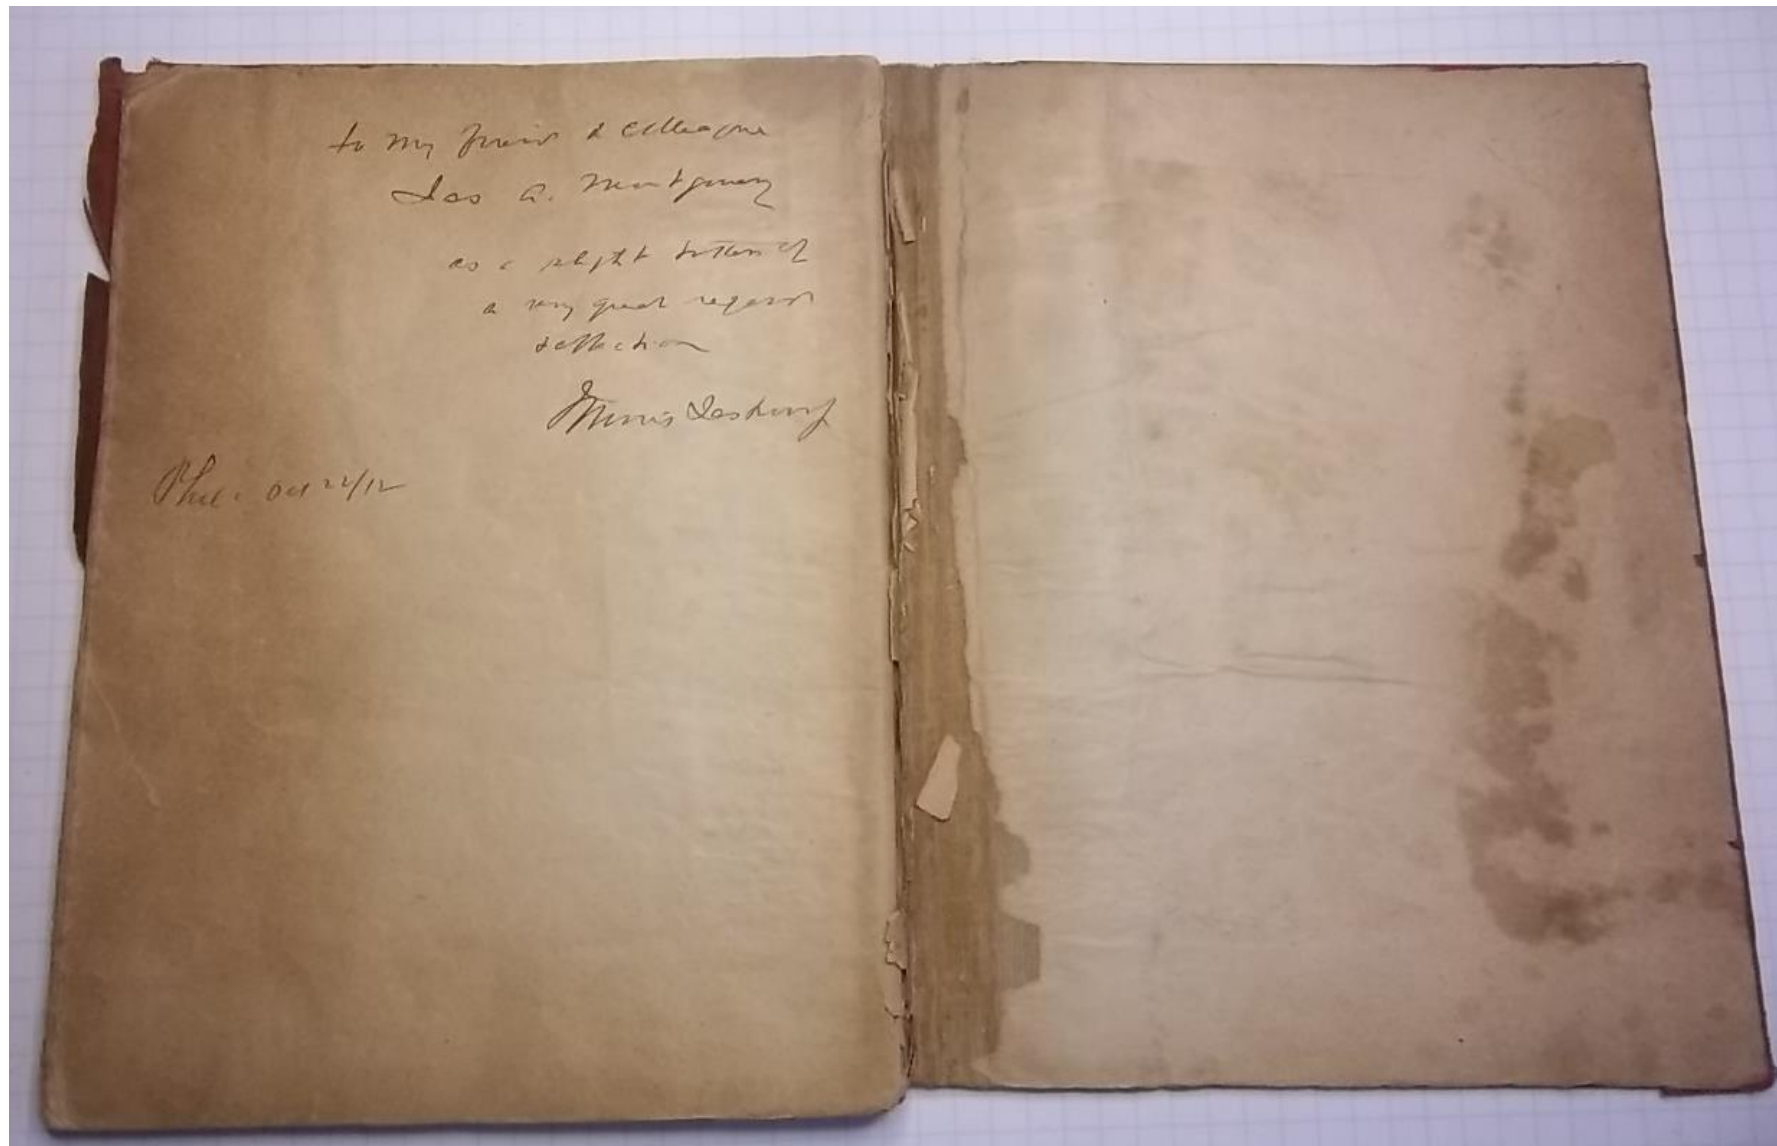 to my friend & colleague
Jas A. Montgomery
as a slight token of
a very great regard
& affection
Morris Jastrow Jr
Phila Oct 22/12